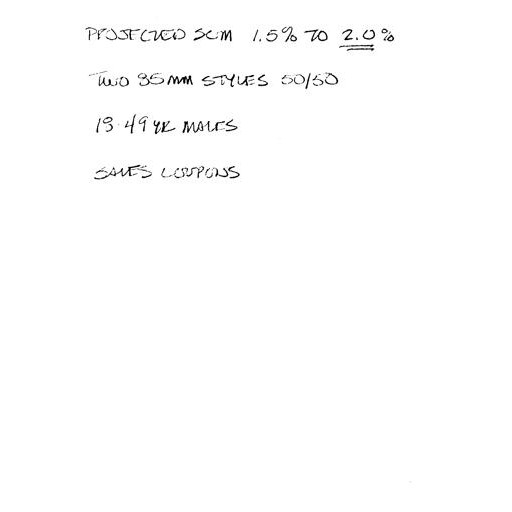 PROJECTED SOM 1.5% TO 2.0%
TWO 85MM STYLES 50/50
18-49 YR MALES
SALES COUPONS